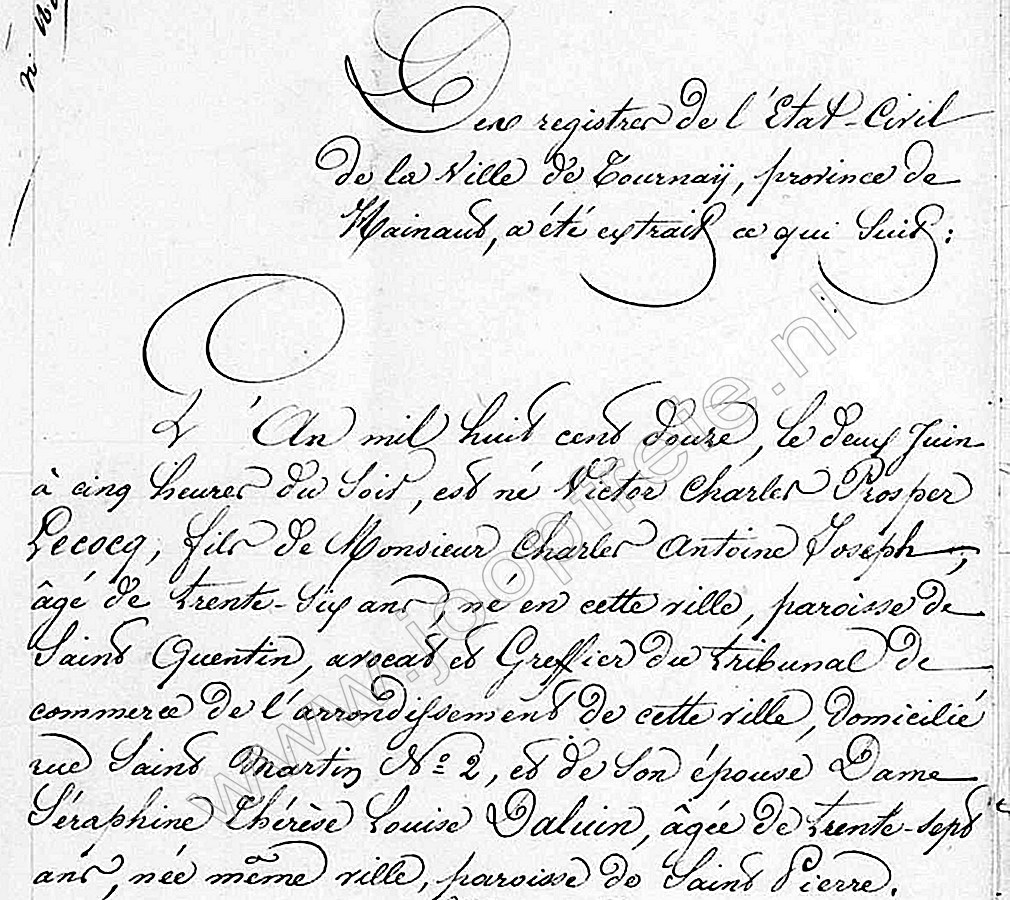 Des registres de l'Etat-Civil
de la Ville de Tournaÿ, province de
Hainaut, a été extrait ce qui suit:
L'An mil huit cent douze, le deux Juin
à cinq heures du Soir, est né Victor Charles Prosper
Lecocq, fils de Monsieur Charles Antoine Joseph,
âgé de trente-six ans, né en cette ville, paroisse de
Saint Quentin, avocat et Greffier du tribunal de
commerce de l'arrondissement de cette ville, domicilié
rue Saint Martin Nº 2, et de son épouse Dame
Séraphine Thérèse Louise Daluin, âgée de trente-sept
ans, née même ville, paroisse de Saint Pierre.
www.joopfreie.nl